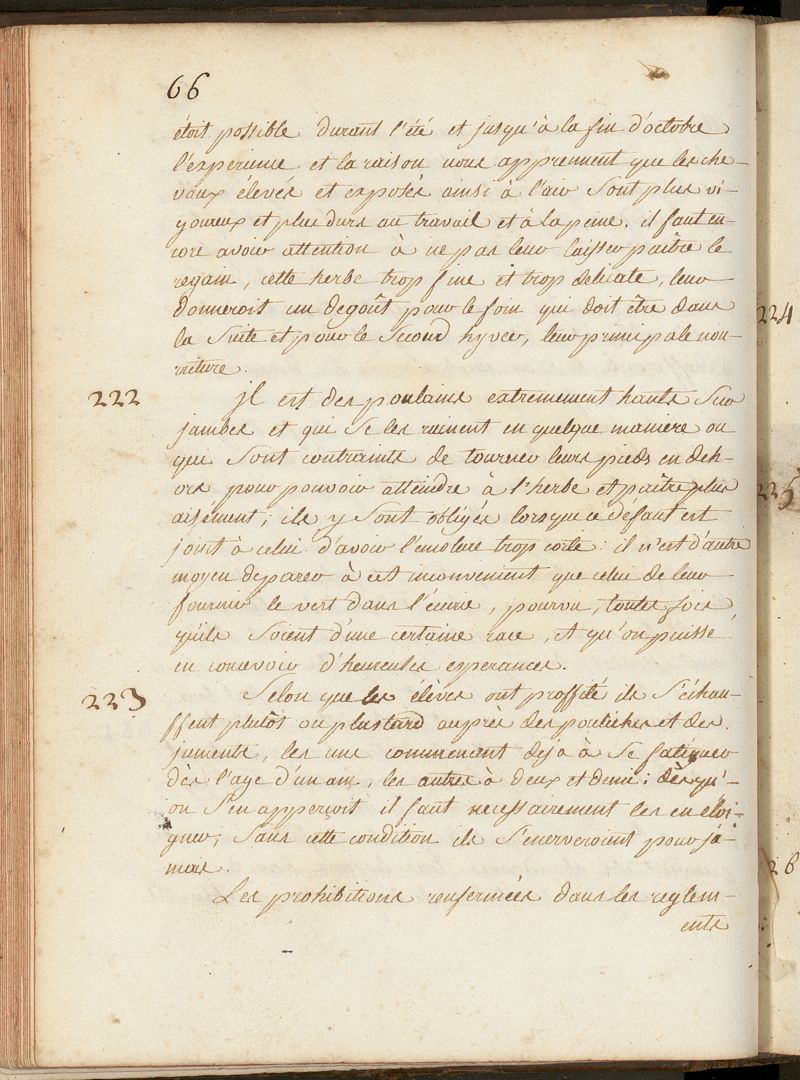 66
étoit possible durant l'été et jusqu'à la fin d'octobre
l'experience et la raison nous apprennent que les che-
vaux élevés et exposés ainsi à l'air sont plus vi-
goureux et plus durs au travail et à la peine. il faut en-
core avoir attention à ne pas leur laisser paitre le
regain, cette herbe trop fine et trop delicate, leur
donneroit un degoût pour le foin qui doit être dans
la suite et pour le second hyver, leur principale nou-
rriture.
222 jl est des poulains extremement hauts sur
jambes et qui se les ruinent en quelque maniere ou
qui sont contraints de tourner leurs pieds en deh-
ors pour pouvoir atteindre à l'herbe et paître plus
aisement; ils y sont obligés lorsque ce defaut est
joint à celui d'avoir l'encolure trop corte: il n'est d'autre
moyen de parer à cet inconvenient que celui de leur
fournir le vert dans l'écurie, pourvu, toutes fois,
qu'ils soient d'une certaine race, et qu'on puisse
en concevoir d'heureuses esperances.
223 Selon que les élèves ont proffité ils s'échau-
ffent plutôt ou plus tard auprès des pouliches et des
juments, les uns commencant deja à se fatiguer
dès l'age d'un an, les autres à deux et demi: dès qu'-
on s'en apperçoit il faut necessairement les en éloi-
gner; sans cette condition ils s'enerveroient pour ja-
mais.
Les prohibitions renfermées dans les reglem-
ents
224
225
26